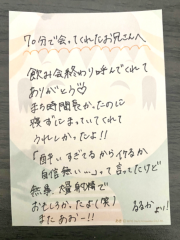 70分で会ってくれたお兄さんへ
飲み会終わり呼んでくれて
ありがとう♡
まち時間長かったのに
寝ずにまっていてくれて
うれしかったよ!!
「酔いすぎてるからイケるか
自信無い…」って言ってたけど
無事大量射精で
おもしろかったよ(笑)
またあおー!!
るるか